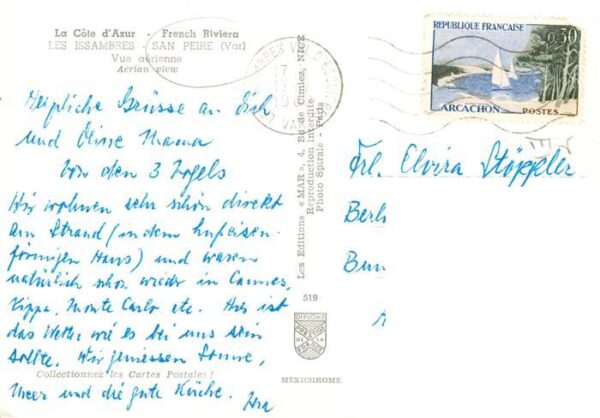 La Côte d'Azur - French Riviera
LES ISSAMBRES - SAN PEIRE (Var)
Vue aérienne
Aerian view
Grüsse an Dich
und Deine Mama
von den 3 Vogels
Wir wohnen sehr schön direkt
am Strand (in dem hufeisen-
förmigen Haus) und waren
natürlich schon wieder in Cannes,
Nizza, Monte Carlo etc. Hier ist
das Wetter wie es bei uns sein
sollte. Wir geniessen Sonne,
Collectionnez les Cartes Postales !
Meer und die gute Küche.
Les Editions « MAR », 4, Bd de Cimiez, NICE
Reproduction interdite
Photo Spirale - Paris
519
DIPLOME
PRESTIGE
DE LA
FRANCE
MEXICHROME
17
VAR
REPUBLIQUE FRANÇAISE
0,30
ARCACHON
POSTES
Frl. Elvira Stöppler
Berl
Bun